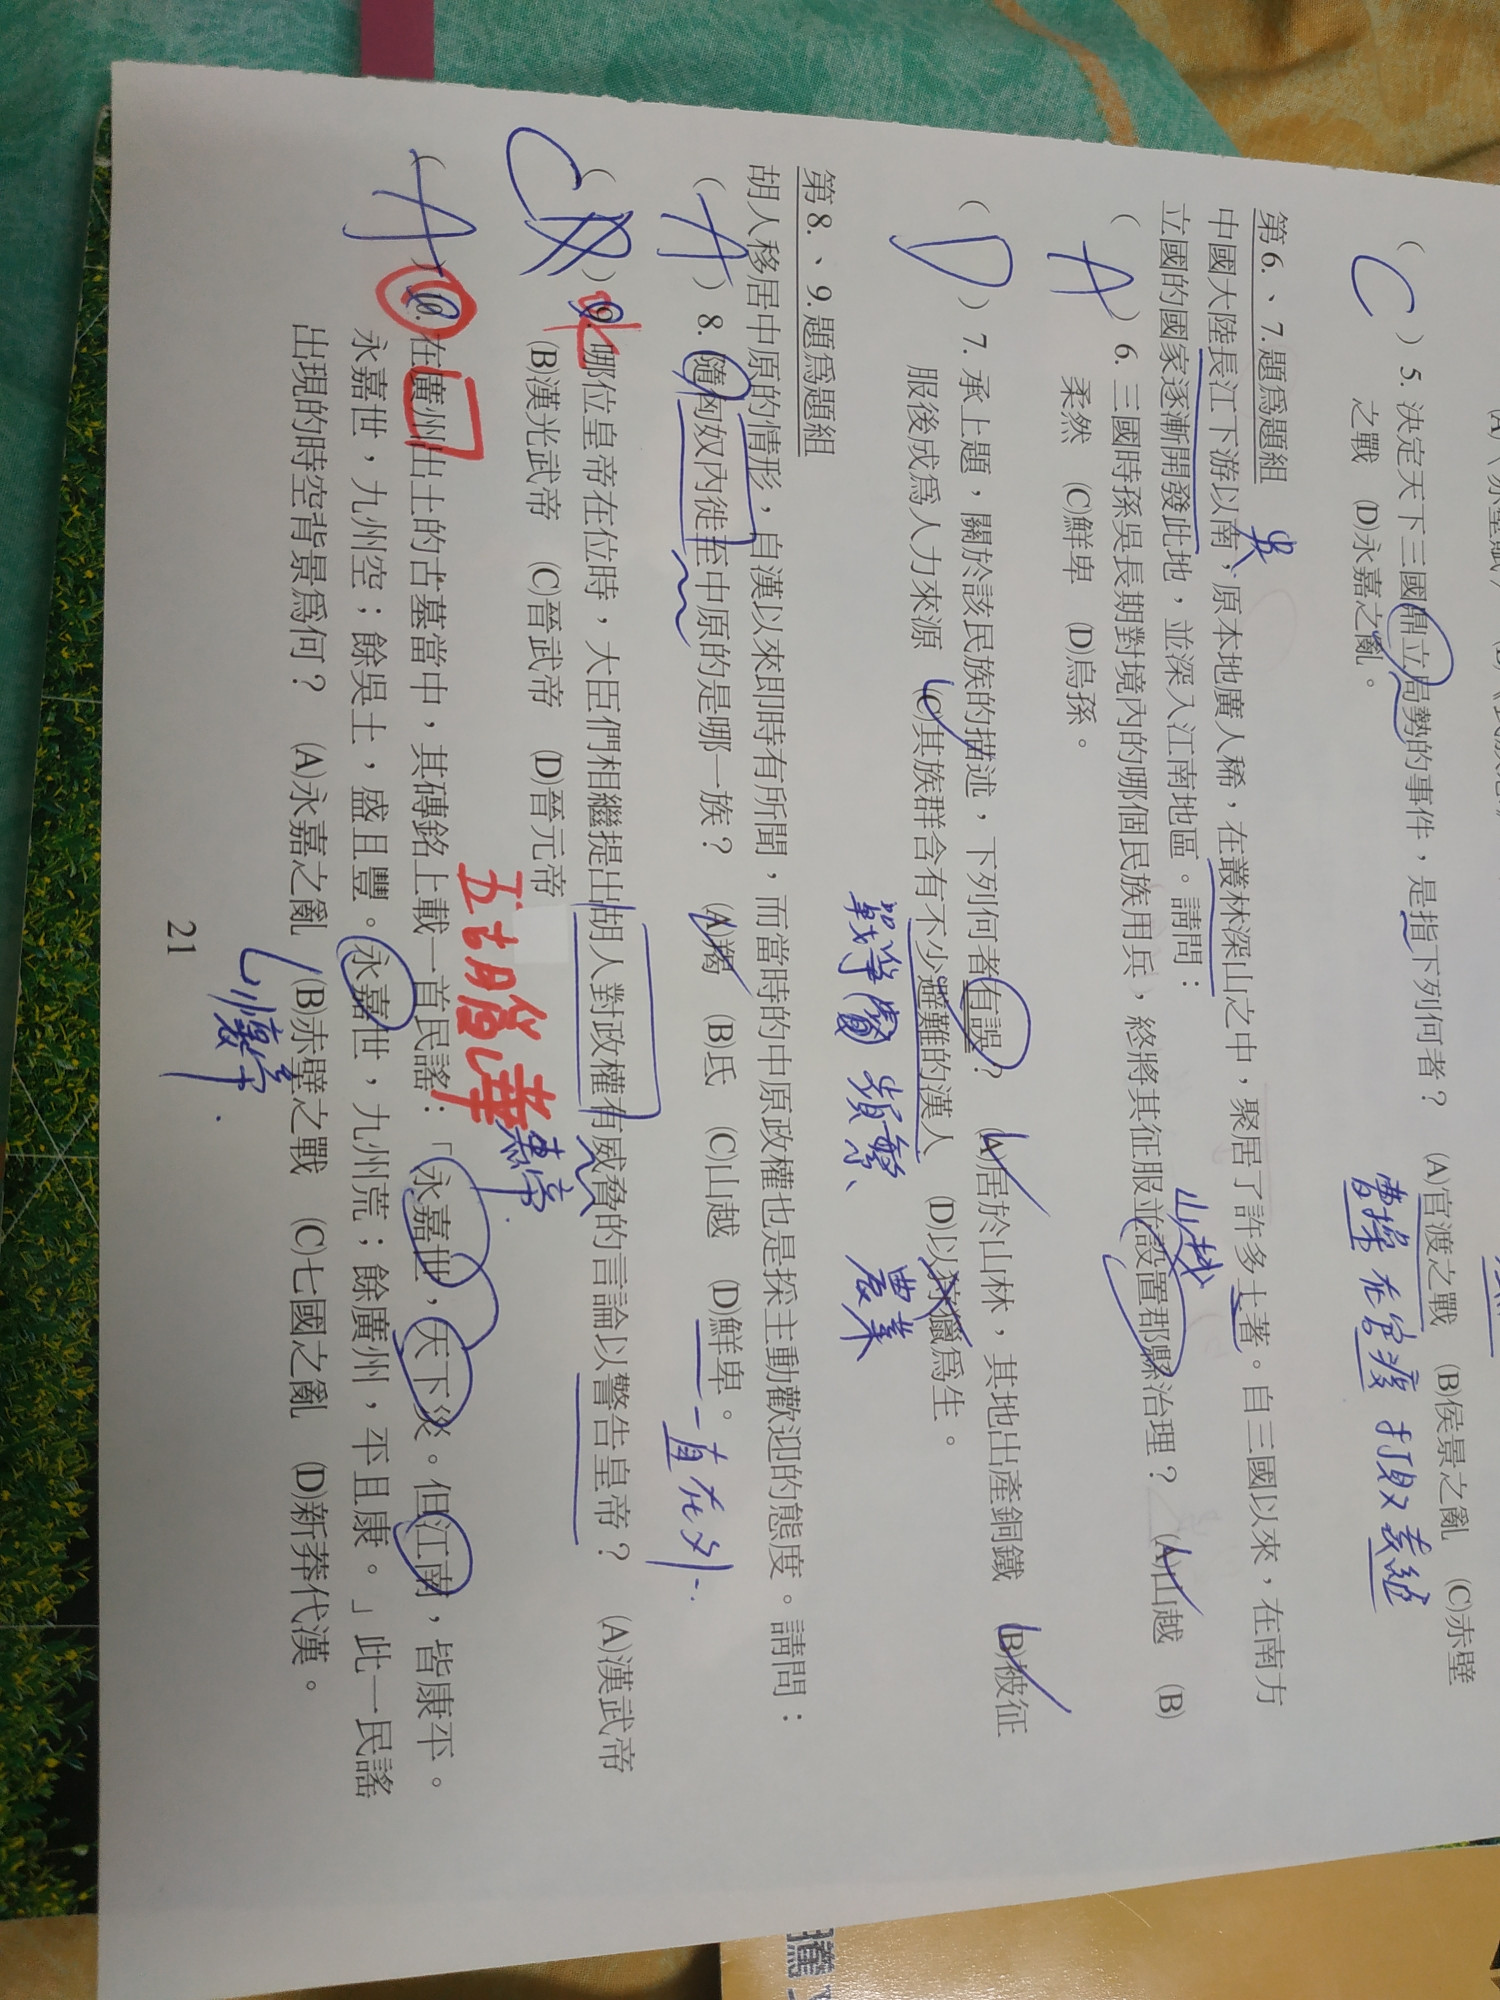 ( C ) 5. 決定天下三國鼎立局勢的事件，是指下列何者？ (A)官渡之戰 (B)侯景之亂 (C)赤壁
之戰 (D)永嘉之亂。
曹操在官渡打敗袁紹
第6.、7.題為題組
吳
中國大陸長江下游以南，原本地廣人稀，在叢林深山之中，聚居了許多土著。自三國以來，在南方
立國的國家逐漸開發此地，並深入江南地區。請問：
山越
( A ) 6. 三國時孫吳長期對境內的哪個民族用兵，終將其征服並設置郡縣治理？ (A)山越 (B)
柔然 (C)鮮卑 (D)烏孫。
( D ) 7. 承上題，關於該民族的描述，下列何者有誤？ (A)居於山林，其地出產銅鐵 (B)被征
服後成為人力來源 (C)其族群含有不少避難的漢人 (D)以狩獵為生。
戰爭 頻繁、 農業
第8.、9.題為題組
胡人移居中原的情形，自漢以來即時有所聞，而當時的中原政權也是採主動歡迎的態度。請問：
( A ) 8. 隨匈奴內徙至中原的是哪一族？ (A)羯 (B)氐 (C)山越 (D)鮮卑。
一直在外
( C ) 9. 哪位皇帝在位時，大臣們相繼提出胡人對政權有威脅的言論以警告皇帝？ (A)漢武帝
(B)漢光武帝 (C)晉武帝 (D)晉元帝
五胡亂華
惠帝
( A ) 10. 在廣州出土的古墓當中，其磚銘上載一首民謠：「永嘉世，天下災。但江南，皆康平。
永嘉世，九州空；餘吳土，盛且豐。永嘉世，九州荒；餘廣州，平且康。」此一民謠
出現的時空背景為何？ (A)永嘉之亂 (B)赤壁之戰 (C)七國之亂 (D)新莽代漢。
懷帝
21